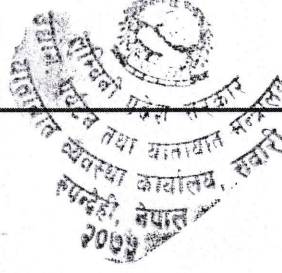 लुम्बिनी प्रदेश सरकार
तथा यातायात मन्त्रालय
यातायात व्यवस्था कार्यालय, सवारी
रुपन्देही, नेपाल
२०७५